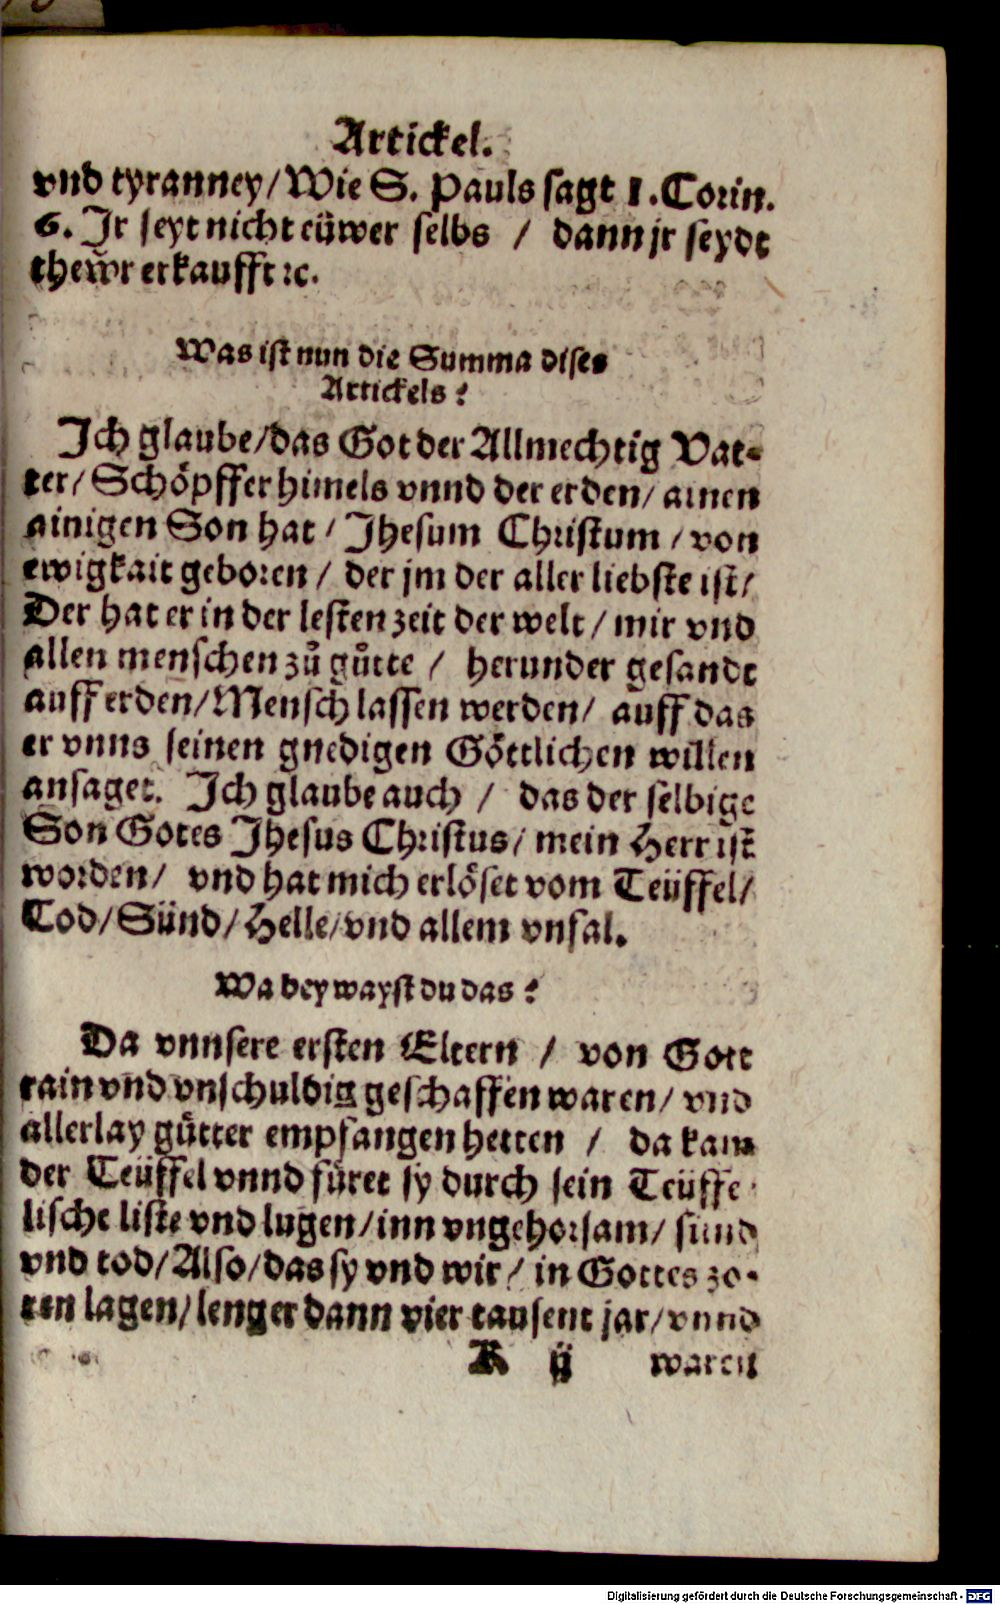 Artickel.
vnd tyranney/Wie S. Pauls sagt 1.Corin.
6. Jr seyt nicht eüwer selbs / dann jr seydt
thewr erkaufft ꝛc.
Was ist nun die Summa dises
Artickels?
Jch glaube/das Got der Allmechtig Vat-
ter/ Schöpffer himels vnnd der erden/ ainen
ainigen Son hat / Jhesum Christum / von
ewigkait geboren / der jm der aller liebste ist/
Der hat er in der lesten zeit der welt / mir vnd
allen menschen zů gůtte / herunder gesandt
auff erden/Mensch lassen werden/ auff das
er vnns seinen gnedigen Göttlichen willen
ansaget. Jch glaube auch / das der selbige
Son Gotes Jhesus Christus/ mein Herr ist
worden/ vnd hat mich erlöset vom Teüffel/
Tod/Sünd/Helle/vnd allem vnfal.
Wa bey wayst du das?
Da vnnsere ersten Eltern / von Gott
rain vnd vnschuldig geschaffen waren/ vnd
allerlay gůtter empfangen hetten / da kam
der Teüffel vnnd füret sy durch sein Teüffe-
lische liste vnd lugen/inn vngehorsam/ sünd
vnd tod/Also/das sy vnd wir / in Gottes zo-
ren lagen/lenger dann vier tausent jar/vnnd
K ij waren
Digitalisierung gefördert durch die Deutsche Forschungsgemeinschaft - DFG